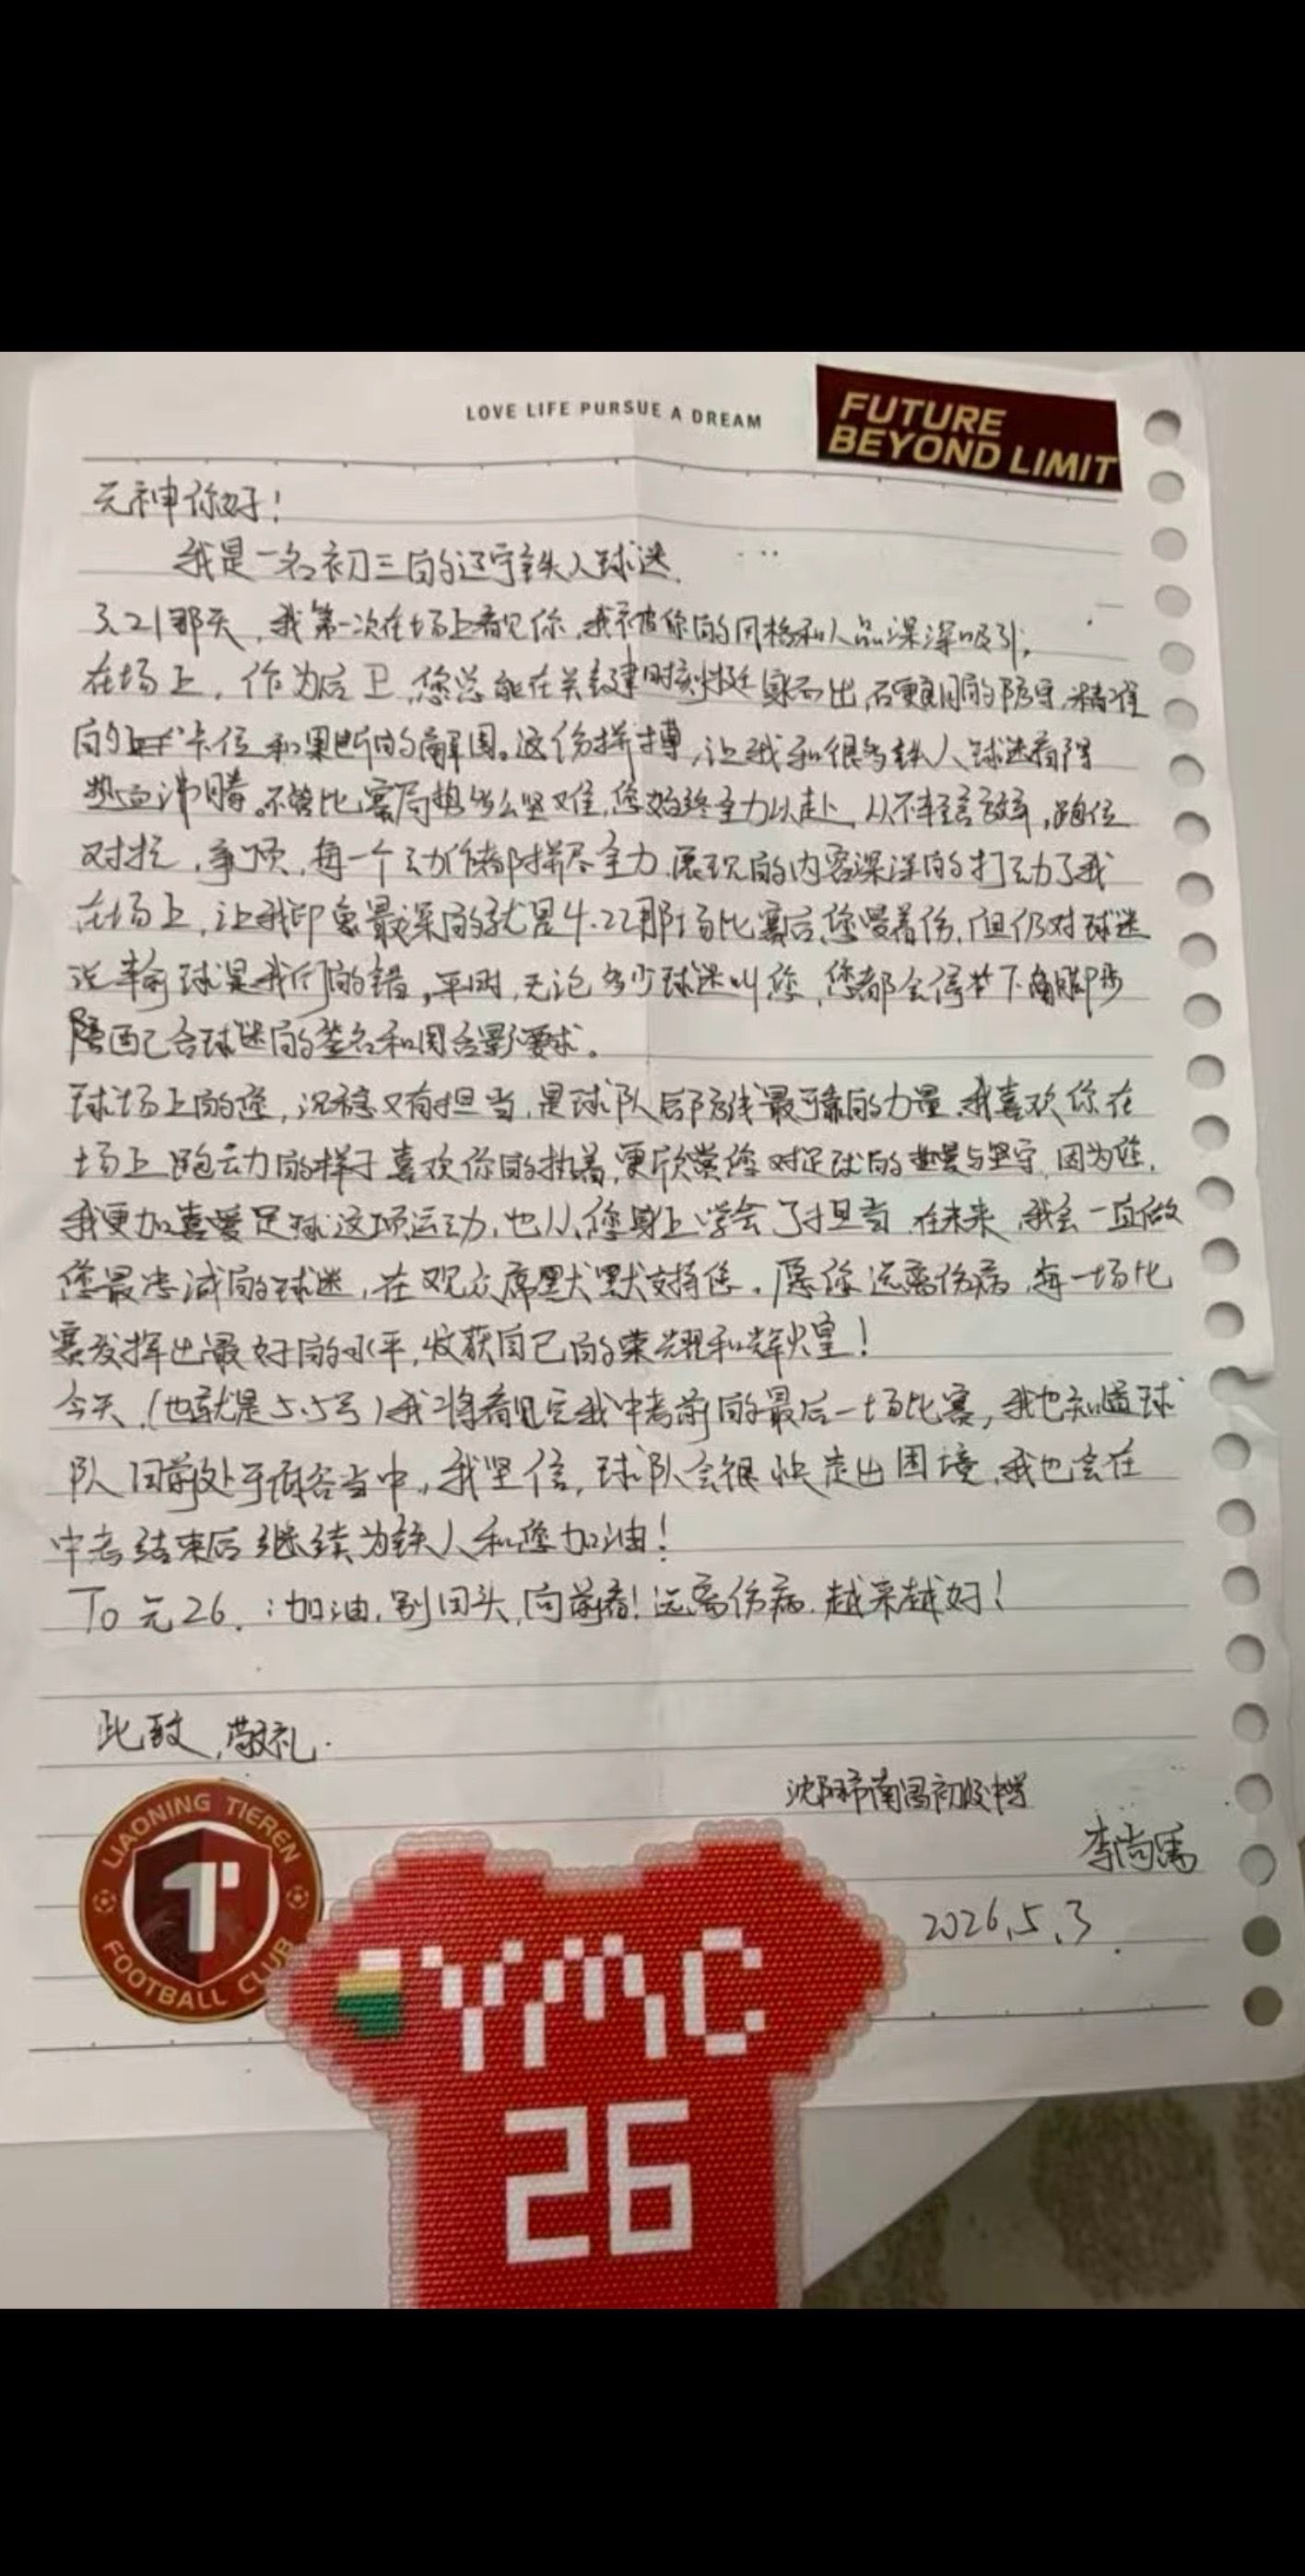 LOVE LIFE PURSUE A DREAM
FUTURE
BEYOND LIMIT
元神你好！
我是一名初三的辽宁铁人球迷.
3.21那天，我第一次在场上看见你，我被你的风格和人品深深吸引，
在场上，作为后卫，您总能在关键时刻挺身而出，硬朗的防守，精准
的卡位和果断的解围。这份拼搏，让我和很多铁人球迷看得
热血沸腾。不管比赛局势多么坚难，您始终全力以赴，从不轻言放弃，跑位
对抗，争顶，每一个动作都拼尽全力，展现的内容深深的打动了我
在场上，让我印象最深的就是4.22那场比赛后，您受着伤，但仍对球迷
说输球是我们的错，平时，无论多少球迷叫您，您都会停下脚步
配合球迷的签名和合影要求。
球场上的您，沉稳又有担当，是球队后防线最可靠的力量，我喜欢你在
场上跑动的样子喜欢你的执着，更欣赏您对足球的热爱与坚守，因为您，
我更加喜爱足球这项运动，也从您身上学会了担当，在未来，我会一直做
您最忠诚的球迷，在观众席默默支持您。愿你远离伤病，每一场比
赛发挥出最好的水平，收获自己的荣耀和辉煌！
今天，（也就是5.5号）我将看见完我中考前的最后一场比赛，我也知道球
队目前处于低谷当中，我坚信，球队会很快走出困境，我也会在
中考结束后继续为铁人和您加油！
To 元26.：加油，别回头，向前看！远离伤病，越来越好！
此致，敬礼.
沈阳市南昌初级中学
李尚
2026.5.3.
LIAONING TIEREN
FOOTBALL CLUB
YMC
26